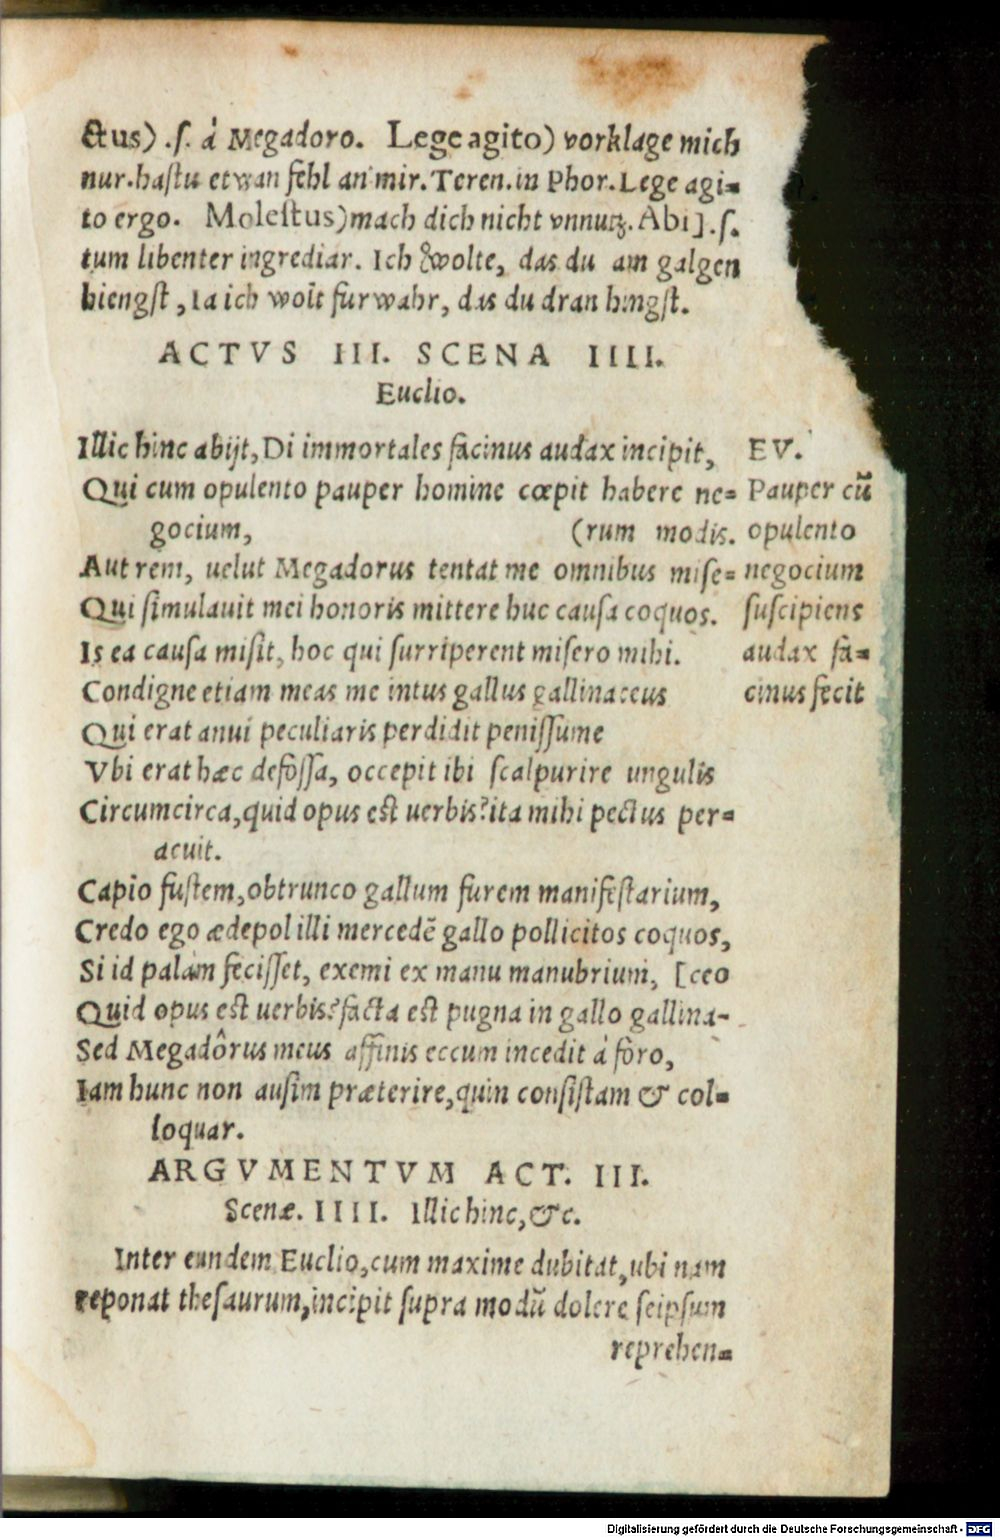 ctus) .ſ. à Megadoro. Lege agito) vorklage mich
nur. haſtu etwan fehl an mir. Teren. in Phor. Lege agi=
to ergo. Moleſtus) mach dich nicht vnnutz. Abi]. ſ.
tum libenter ingrediar. Ich wolte, das du am galgen
hiengſt, Ia ich wolt furwahr, das du dran hingſt.
ACTVS III. SCENA IIII.
Euclio.
Illic hinc abijt, Di immortales facinus audax incipit,
Qui cum opulento pauper homine cœpit habere ne=
gocium, (rum modis.
Aut rem, uelut Megadorus tentat me omnibus miſe=
Qui ſimulauit mei honoris mittere huc cauſa coquos.
Is ea cauſa miſit, hoc qui ſurriperent miſero mihi.
Condigne etiam meas me intus gallus gallinaceus
Qui erat anui peculiaris perdidit peniſſume
Vbi erat hæc defoſſa, occepit ibi ſcalpurire ungulis
Circumcirca, quid opus eſt uerbis? ita mihi pectus per=
acuit.
Capio fuſtem, obtrunco gallum furem manifeſtarium,
Credo ego ædepol illi mercedē gallo pollicitos coquos,
Si id palam feciſſet, exemi ex manu manubrium, [ceo
Quid opus eſt uerbis? facta eſt pugna in gallo gallina-
Sed Megadôrus meus affinis eccum incedit à foro,
Iam hunc non auſim præterire, quin conſiſtam & col=
loquar.
EV.
Pauper cū
opulento
negocium
ſuſcipiens
audax fa=
cinus fecit
ARGVMENTVM ACT. III.
Scenæ. IIII. Illic hinc, &c.
Inter eundem Euclio, cum maxime dubitat, ubi nam
reponat theſaurum, incipit ſupra modū dolere ſeipſum
reprehen=
Digitalisierung gefördert durch die Deutsche Forschungsgemeinschaft - DFG